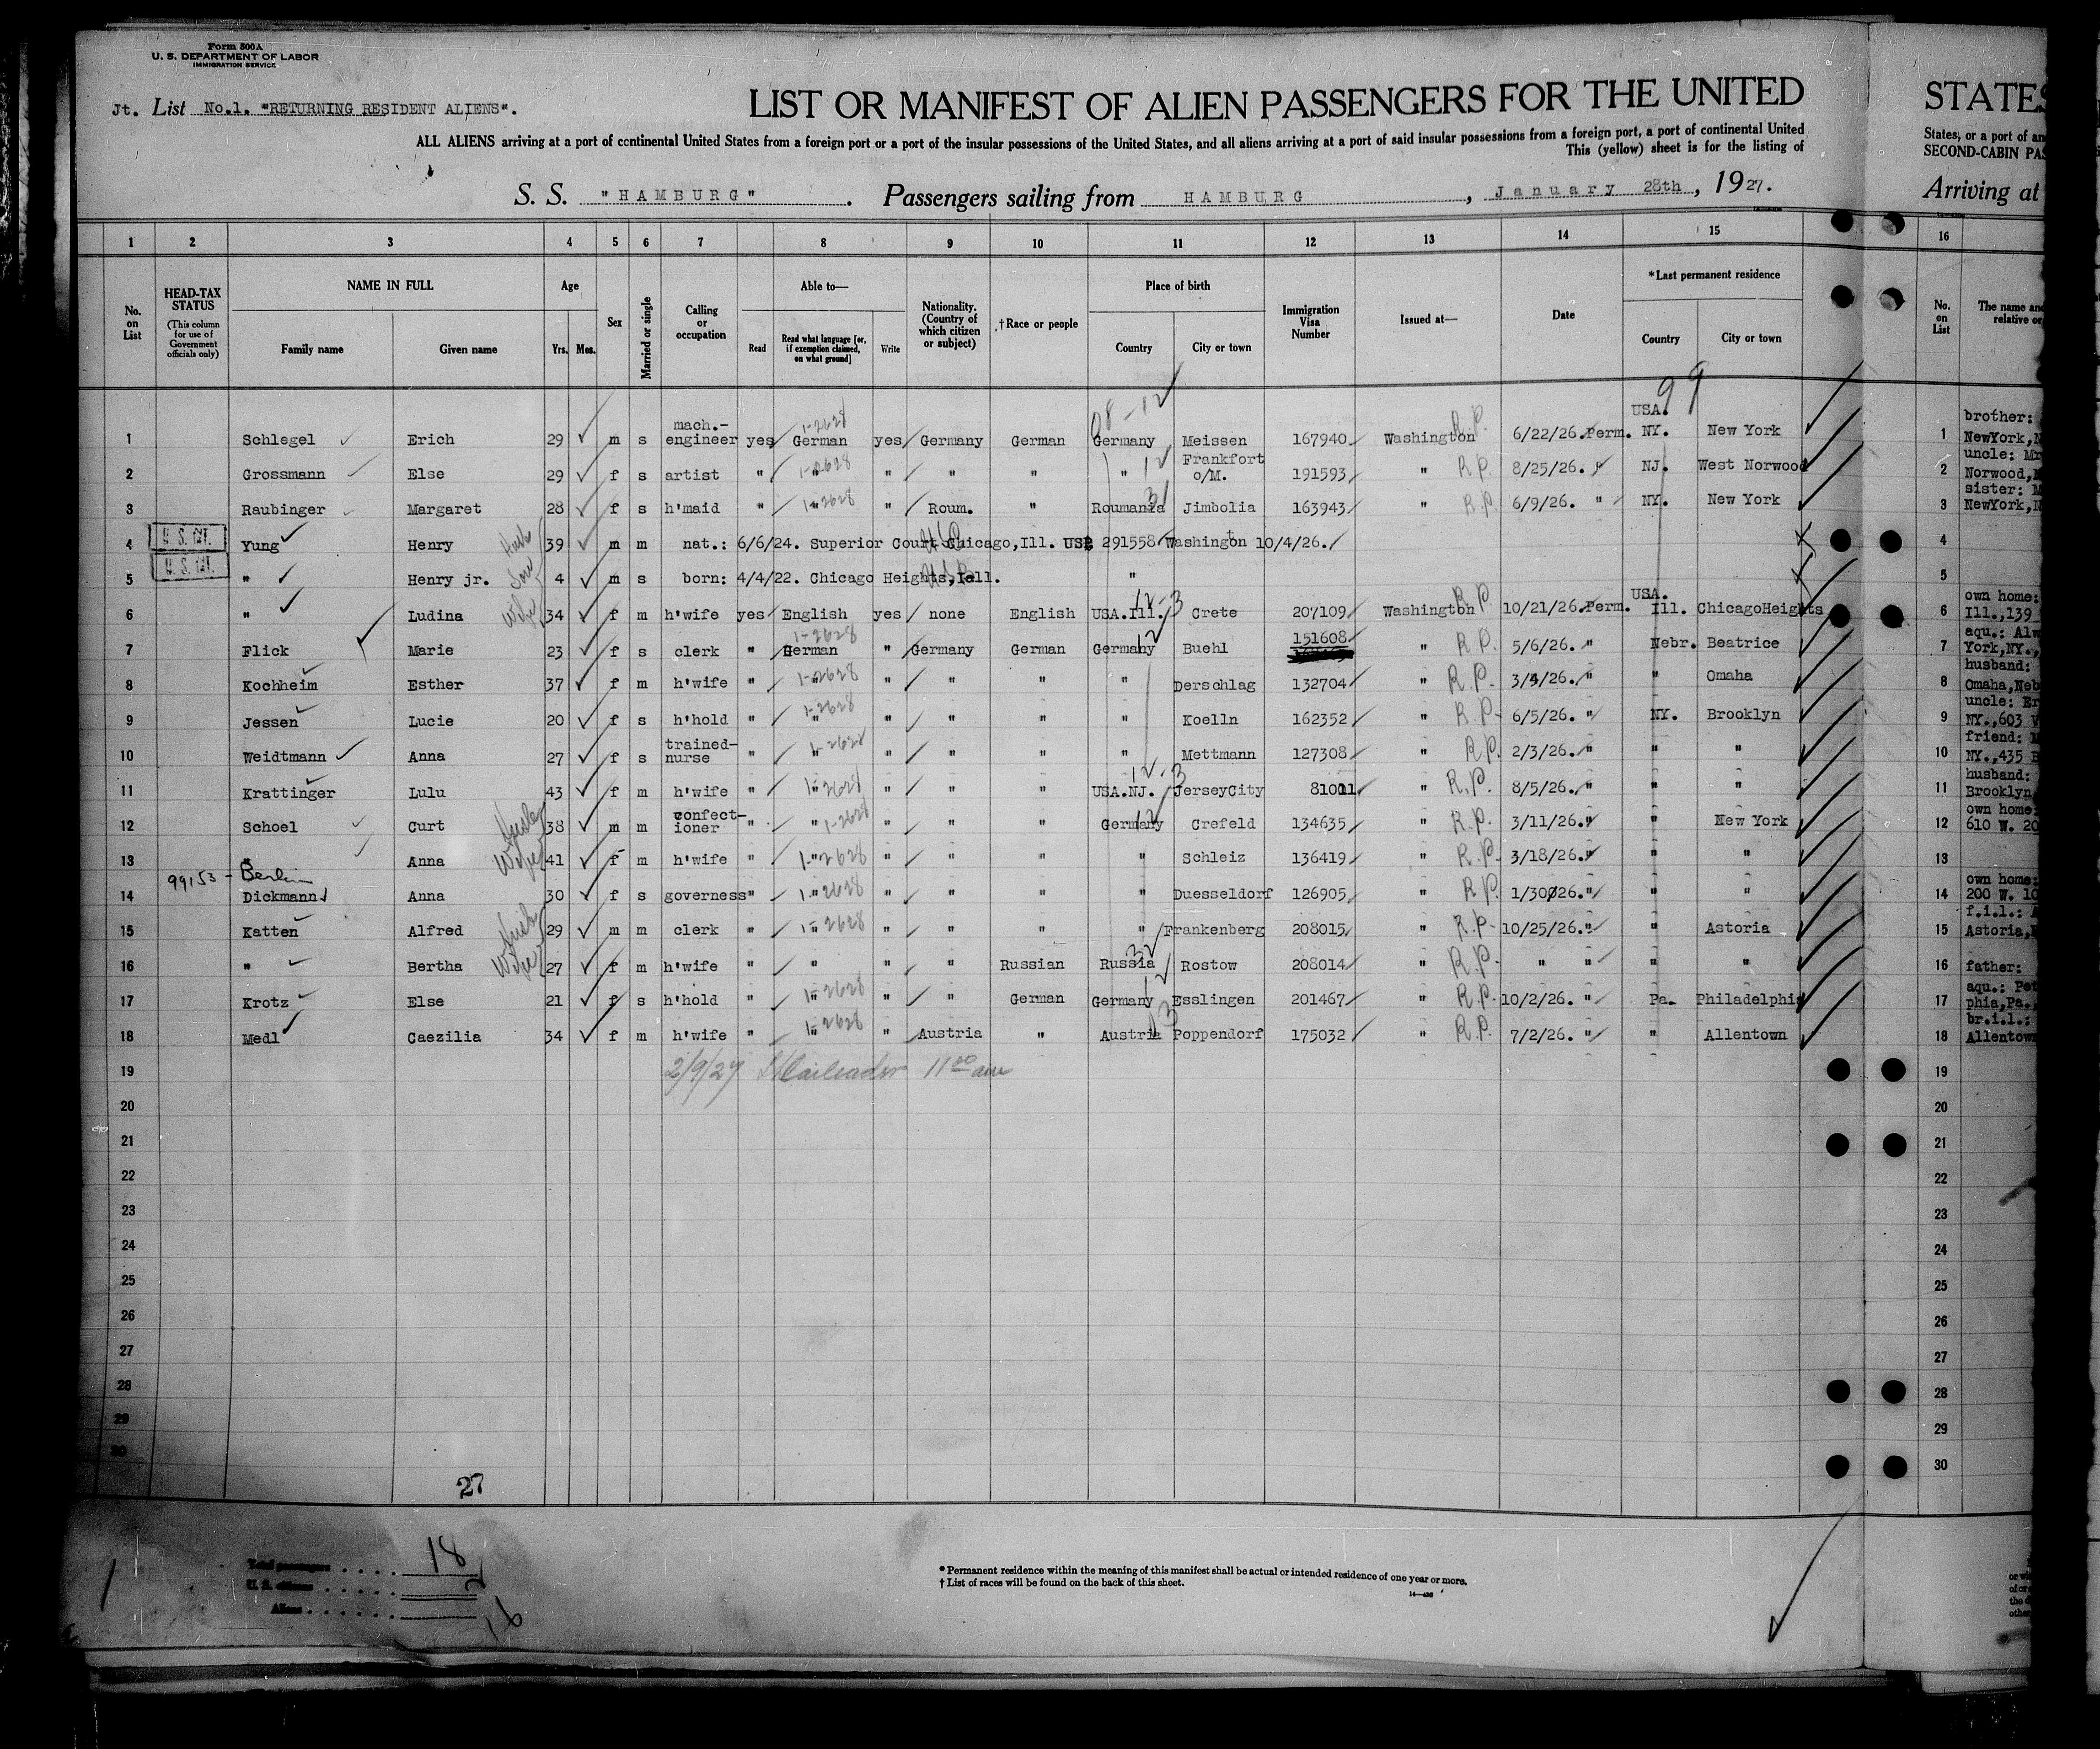 Form 500A
U. S. DEPARTMENT OF LABOR
IMMIGRATION SERVICE
Jt. List No.1. "RETURNING RESIDENT ALIENS".
LIST OR MANIFEST OF ALIEN PASSENGERS FOR THE UNITED
STATES
ALL ALIENS arriving at a port of continental United States from a foreign port or a port of the insular possessions of the United States, and all aliens arriving at a port of said insular possessions from a foreign port, a port of continental United
States, or a port of an
This (yellow) sheet is for the listing of
SECOND-CABIN PAS
S. S. "HAMBURG". Passengers sailing from HAMBURG, January 28th, 1927.
Arriving at
1 2 3 4 5 6 7 8 9 10 11 12 13 14 15 16
No. on List
HEAD-TAX STATUS (This column for use of Government officials only)
NAME IN FULL
Family name Given name
Age
Yrs. Mos.
Sex
Married or single
Calling or occupation
Able to—
Read
Read what language [or, if exemption claimed, on what ground]
Write
Nationality. (Country of which citizen or subject)
†Race or people
Place of birth
Country City or town
Immigration Visa Number
Issued at—
Date
*Last permanent residence
Country City or town
No. on List
The name and
relative or
99
1 Schlegel Erich 29 m s mach.-engineer yes German 1-2628 yes Germany German Germany Meissen 167940 Washington R.P. 6/22/26. Perm. USA. NY. New York
2 Grossmann Else 29 f s artist " " 1-2628 " " " " Frankfort o/M. 191593 " R.P. 8/25/26. " NJ. West Norwood
3 Raubinger Margaret 28 f s h'maid " " 1-2628 " Roum. " Roumania Jimbolia 163943 " R.P. 6/9/26. " NY. New York
4 U. S. CIT. Yung Henry 39 m m nat.: 6/6/24. Superior Court Chicago,Ill. USP 291558 Washington 10/4/26.
5 U. S. CIT. " Henry jr. Son 4 m s born: 4/4/22. Chicago Heights,Ill. "
6 " Ludina Wife 34 f m h'wife yes English yes none English USA.Ill. Crete 207109 Washington R.P. 10/21/26. Perm. USA. Ill. ChicagoHeights
7 Flick Marie 23 f s clerk " German 1-2628 " Germany German Germany Buehl 151608 " R.P. 5/6/26. " Nebr. Beatrice
8 Kochheim Esther 37 f m h'wife " " 1-2628 " " " " Derschlag 132704 " R.P. 3/4/26. " " Omaha
9 Jessen Lucie 20 f s h'hold " " 1-2628 " " " " Koelln 162352 " R.P. 6/5/26. " NY. Brooklyn
10 Weidtmann Anna 27 f s trained-nurse " " 1-2628 " " " " Mettmann 127308 " R.P. 2/3/26. " " "
11 Krattinger Lulu 43 f m h'wife " " 1-2628 " " " USA.NJ. JerseyCity 81011 " R.P. 8/5/26. " " "
12 Schoel Curt 38 m m confect-ioner " " 1-2628 " " " Germany Crefeld 134635 " R.P. 3/11/26. " " New York
13 " Anna Wife 41 f m h'wife " " 1-2628 " " " " Schleiz 136419 " R.P. 3/18/26. " " "
99153 - Berlin
14 Dickmann Anna 30 f s governess " " 1-2628 " " " " Duesseldorf 126905 " R.P. 1/30/26. " " "
15 Katten Alfred 29 m m clerk " " 1-2628 " " " " Frankenberg 208015 " R.P. 10/25/26. " " Astoria
16 " Bertha Wife 27 f m h'wife " " " " Russian Russia Rostow 208014 " R.P. " " " "
17 Krotz Else 21 f s h'hold " " 1-2628 " " German Germany Esslingen 201467 " R.P. 10/2/26. " Pa. Philadelphia
18 Medl Caezilia 34 f m h'wife " " 1-2628 " Austria " Austria Poppendorf 175032 " R.P. 7/2/26. " " Allentown
19 2/9/27 11 00 am
20
21
22
23
24
25
26
27
28
29
30
1 brother: NewYork,N
2 uncle: Mr Norwood,
3 sister: M NewYork,N
4
5
6 own home: Ill.,139
7 aqu.: Alw York,NY.,
8 husband: Omaha,Neb
9 uncle: Er NY.,603 W
10 friend: M NY.,435 B
11 husband: Brooklyn
12 own home: 610 W. 20
13
14 own home: 200 W. 10
15 f.i.l.: A Astoria,
16 father:
17 aqu.: Pet phia,Pa.,
18 br.i.l.: Allentown
19
20
21
22
23
24
25
26
27
28
29
30
27
Total passengers . . . . 18
U. S. citizens . . . . 2
Aliens . . . . . .
* Permanent residence within the meaning of this manifest shall be actual or intended residence of one year or more.
† List of races will be found on the back of this sheet.